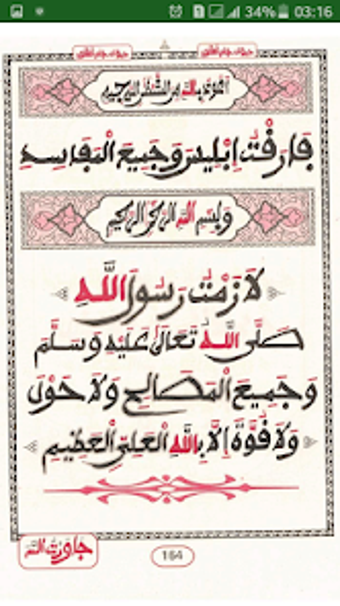 34% 03:16
أعوذ بالله من الشيطان الرجيم
فَارَقْتُ إِبْلِيسَ وَجَمِيعَ الْمَفَاسِدِ
وبسم الله الرحمن الرحيم
لَازَمْتُ رَسُولَ اللَّهِ
صَلَّى اللَّهُ تَعَالَى عَلَيْهِ وَسَلَّمَ
وَجَمِيعَ الْمَصَالِحِ وَلَا حَوْلَ
وَلَا قُوَّةَ إِلَّا بِاللَّهِ الْعَلِيِّ الْعَظِيمِ
جاورت الله
164